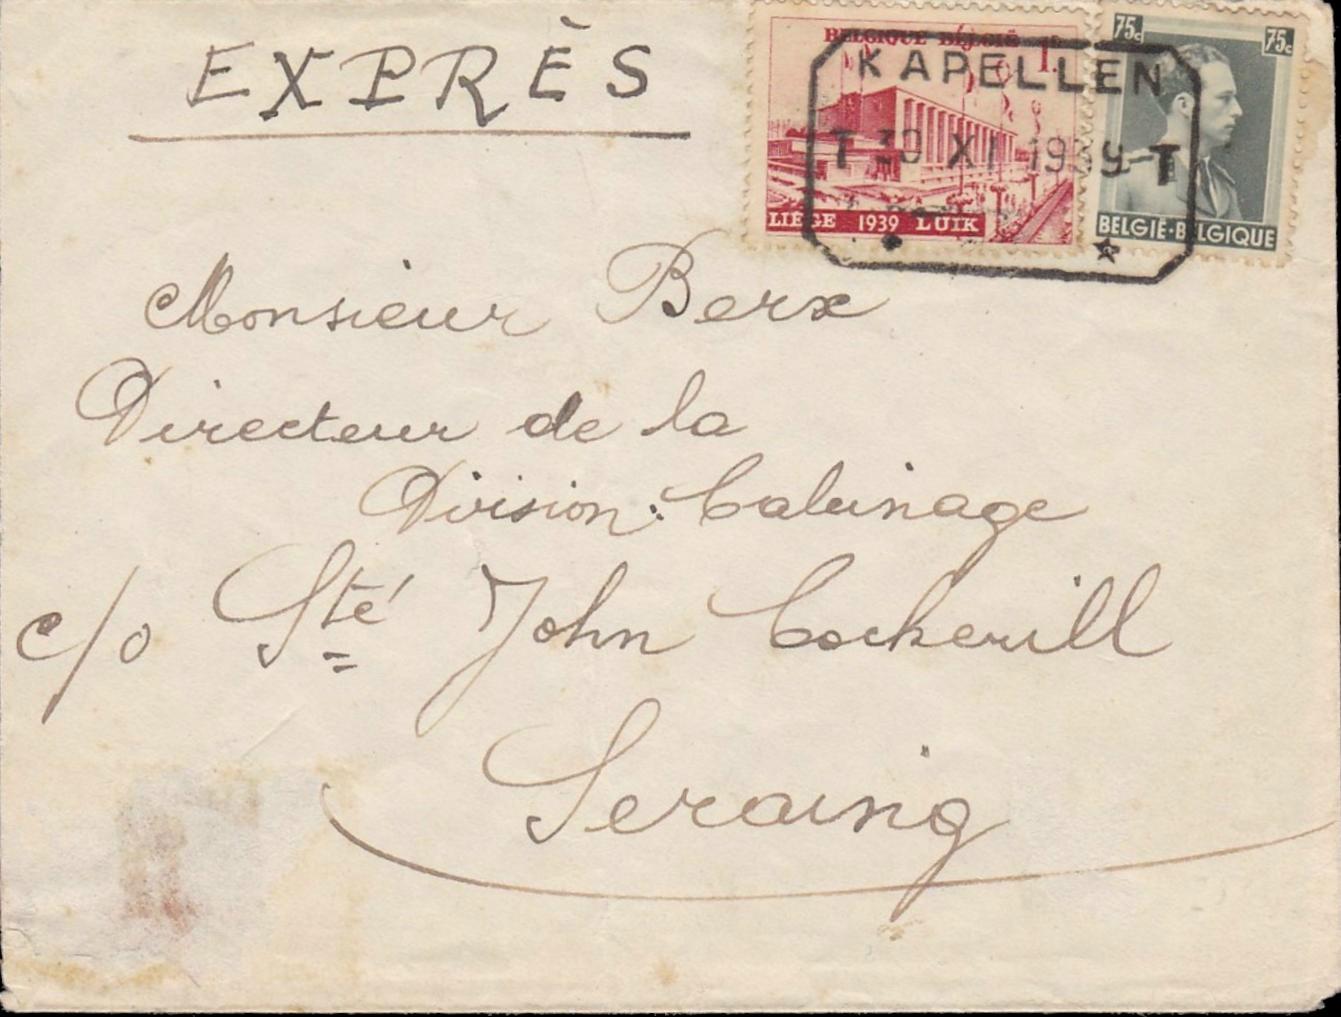 EXPRÈS
BELGIQUE BELGIË 1F
LIÈGE 1939 LUIK
75c 75c
BELGIE-BELGIQUE
KAPELLEN
T 30 XI 1939 T
Monsieur Berx
Directeur de la
Division: Calminage
c/o Sté John Cockerill
Seraing